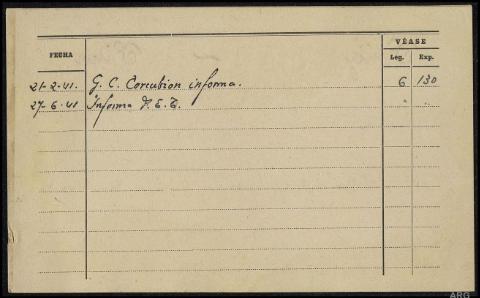 VÉASE
FECHA Leg. Exp.
21-2-41. G. C. Corcubion informa. 6 130
27-6-41 Informa F.E.T. " "
ARG